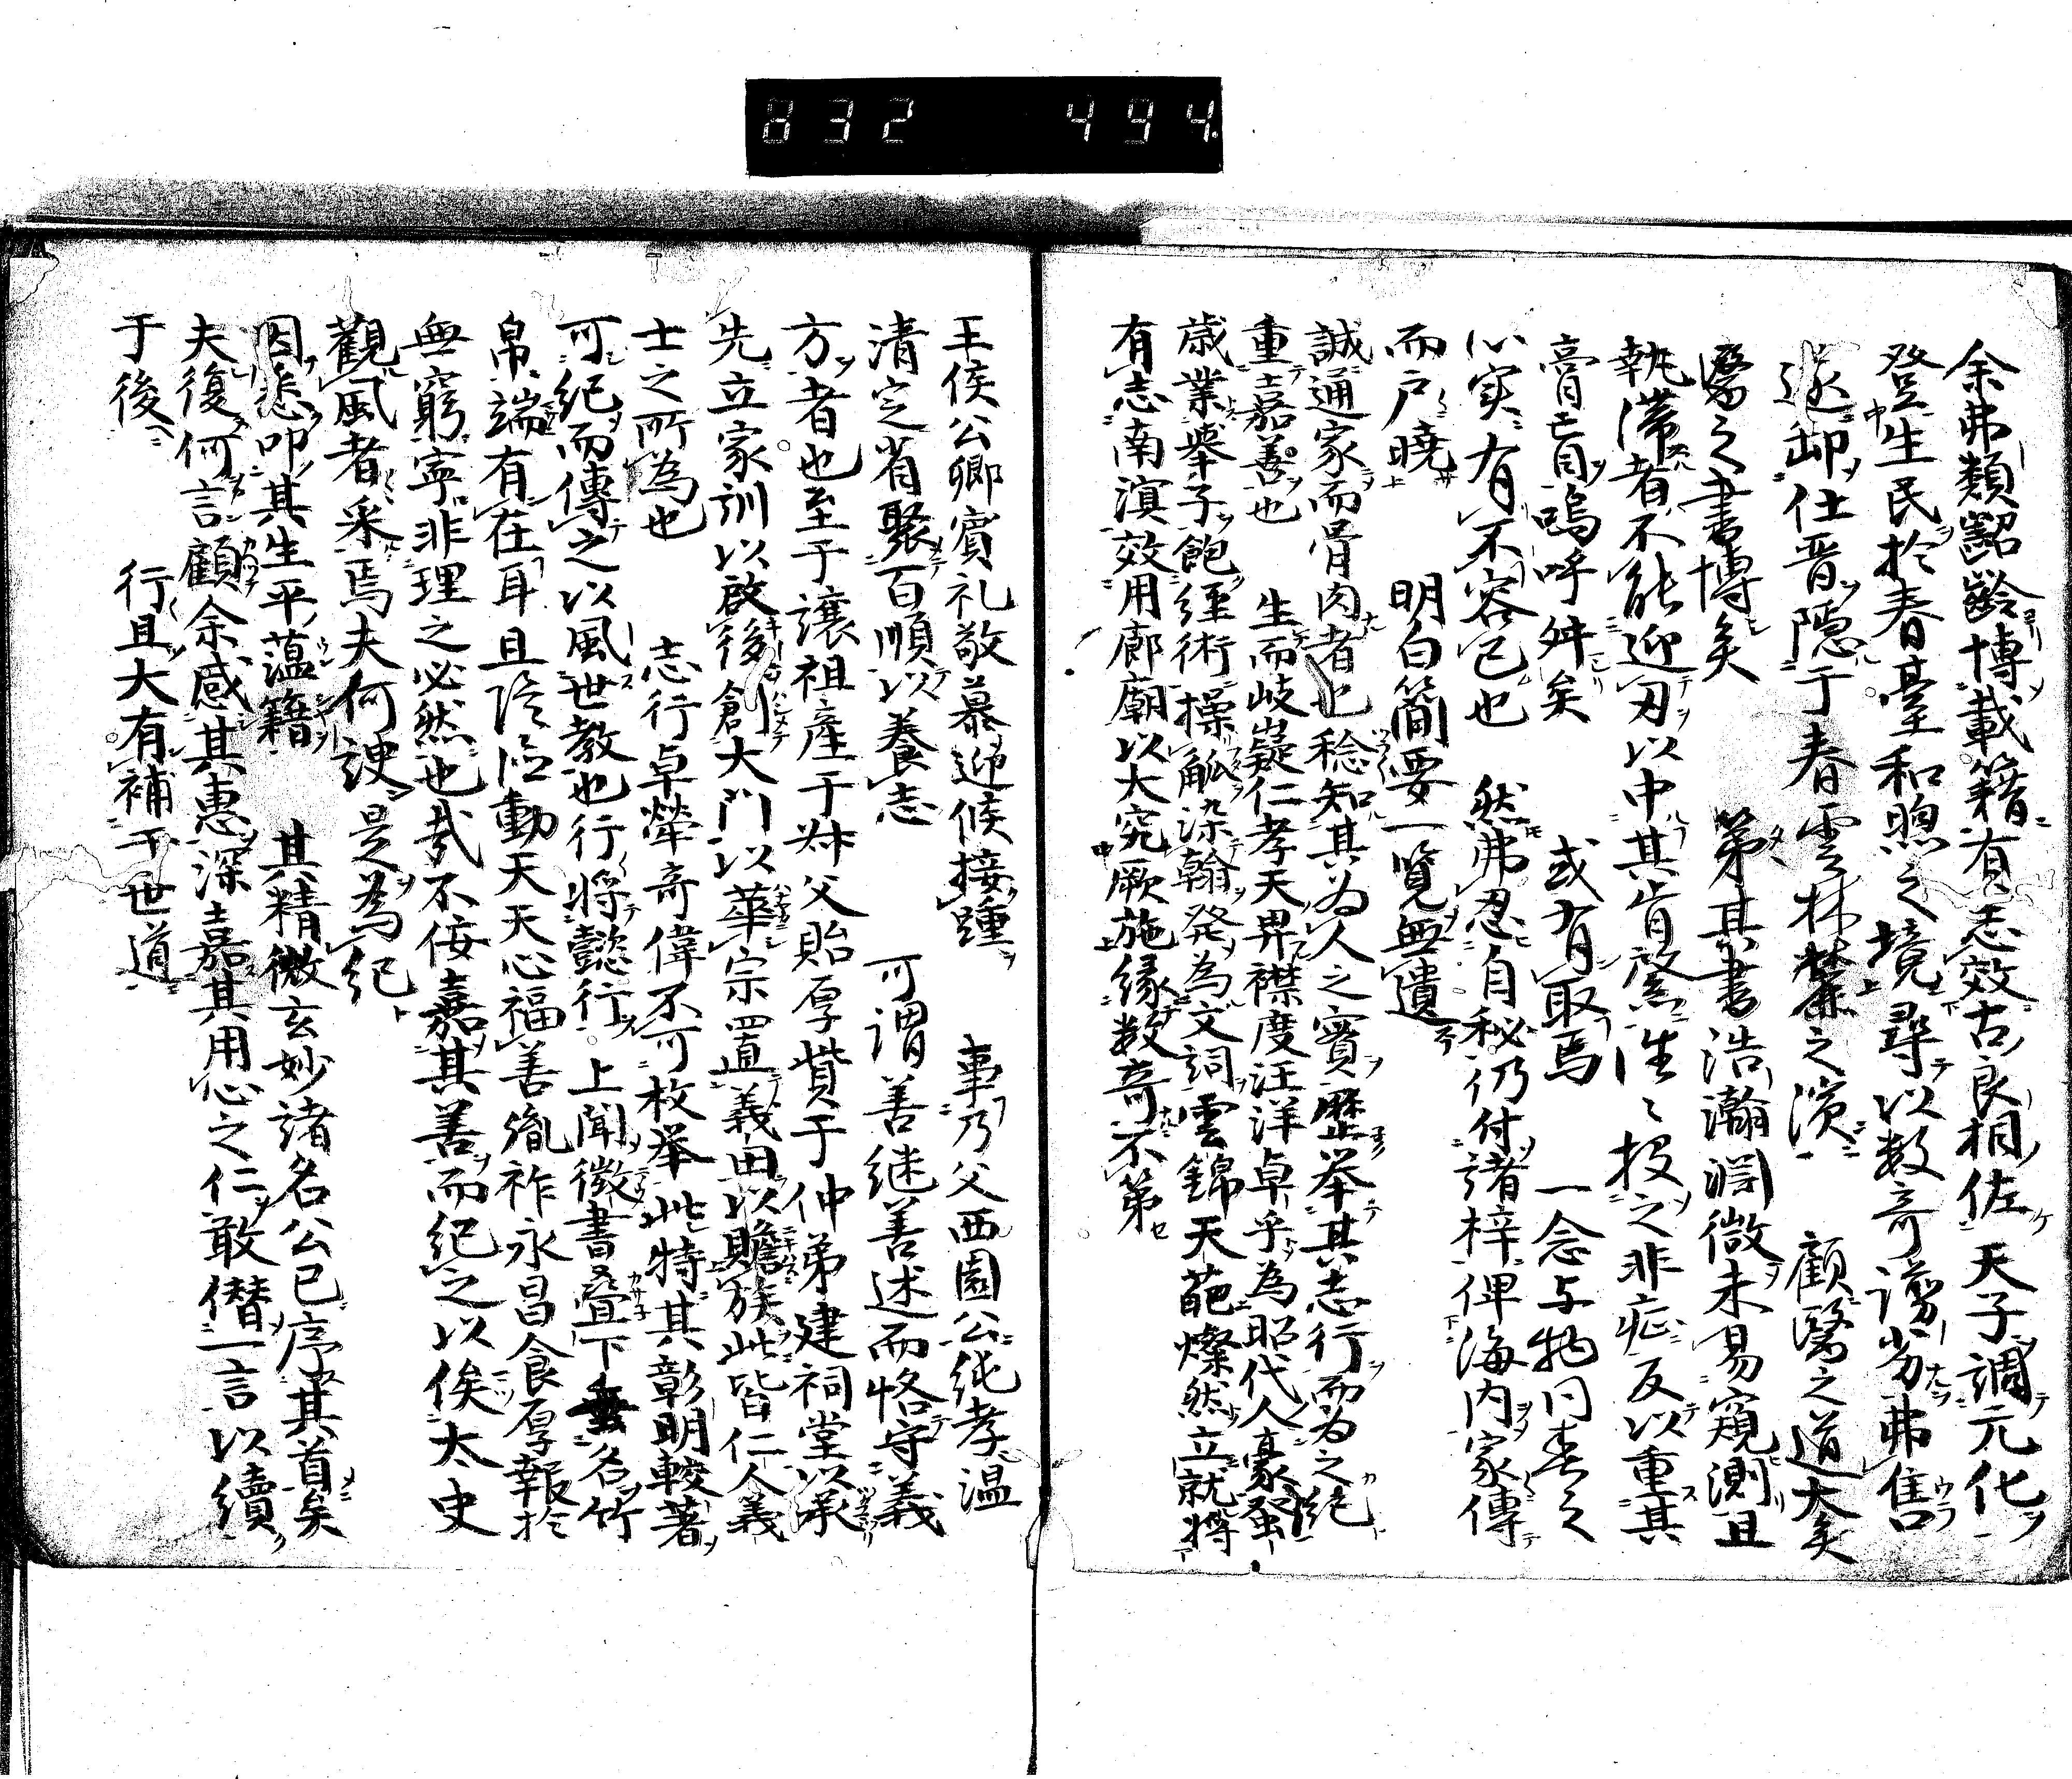 832 494
余弗類齠齡博載籍有志效古良相佐天子調元化
登生民於春臺和煦之境尋以数奇謭劣弗售
遂卸仕晋隠于春雲林麓之濱 顧醫之道大矣
醫之書博矣 第其書浩瀚淵微未易窺測且
執滞者不能迎刃以中其肯綮往〻投之非症反以重其
膏肓嗚呼舛矣 或有取焉 一念与物同春之
心実有不容已也 然弗忍自秘仍付諸梓俾海内家傳
而户曉 明白簡要一覧無遺
誠通家而骨肉者也稔知其为人之實歷举其志行而为之紀
重嘉善也 生而岐嶷仁孝天畀襟度汪洋卓乎為昭代人豪蚤
歳業舉子飽經術操觚染翰発為文詞雲錦天葩燦然立就將
有志南溟效用廊廟以大究厥施縁数奇不第
王侯公卿賓礼敬慕迎候接踵 事乃父西園公純孝温
清定省聚百順以養志 可謂善継善述而恪守義
方者也至于讓祖產于叔父貽厚貲于仲弟建祠堂以承
先立家訓以啟後創大門以華宗置義田以贍族此皆仁人義
士之所為也 志行卓犖奇偉不可枚举此特其彰明較著
可紀而傳之以風世教也行將懿行上聞徴書叠下垂名竹
帛端有在耳且陰隲動天天心福善胤祚永昌食厚報於
無窮寧非理之必然也哉不佞嘉其善而紀之以俟太史
觀風者采焉夫何諛是為紀
因悉叩其生平薀籍 其精微玄妙諸名公已序其首矣
夫復何言顧余感其惠深嘉其用心之仁敢僣一言以續
于後 行且大有補于世道